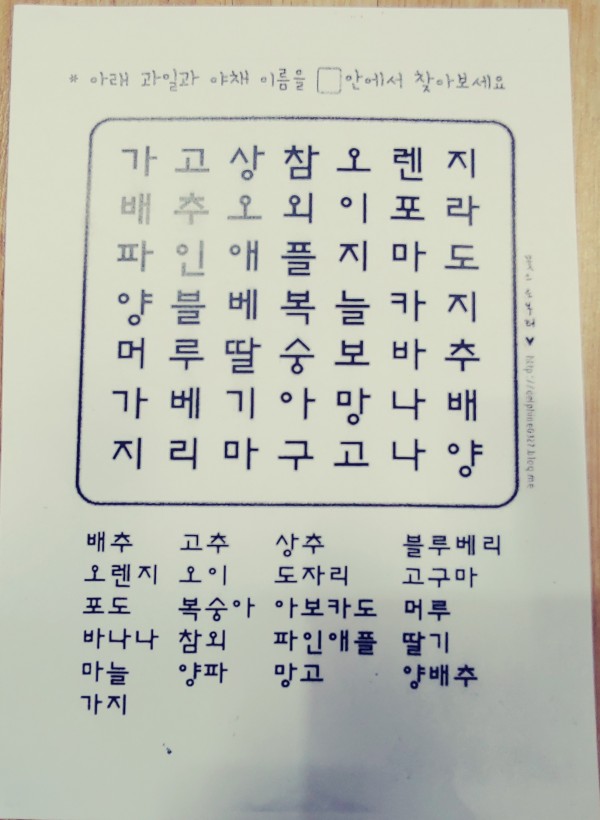 * 아래 과일과 야채 이름을 □안에서 찾아보세요
가 고 상 참 오 렌 지
배 추 오 외 이 포 라
파 인 애 플 지 마 도
양 블 베 복 늘 카 지
머 루 딸 숭 보 바 추
가 베 기 아 망 나 배
지 리 마 구 고 나 양
배추 고추 상추 블루베리
오렌지 오이 도자리 고구마
포도 복숭아 아보카도 머루
바나나 참외 파인애플 딸기
마늘 양파 망고 양배추
가지